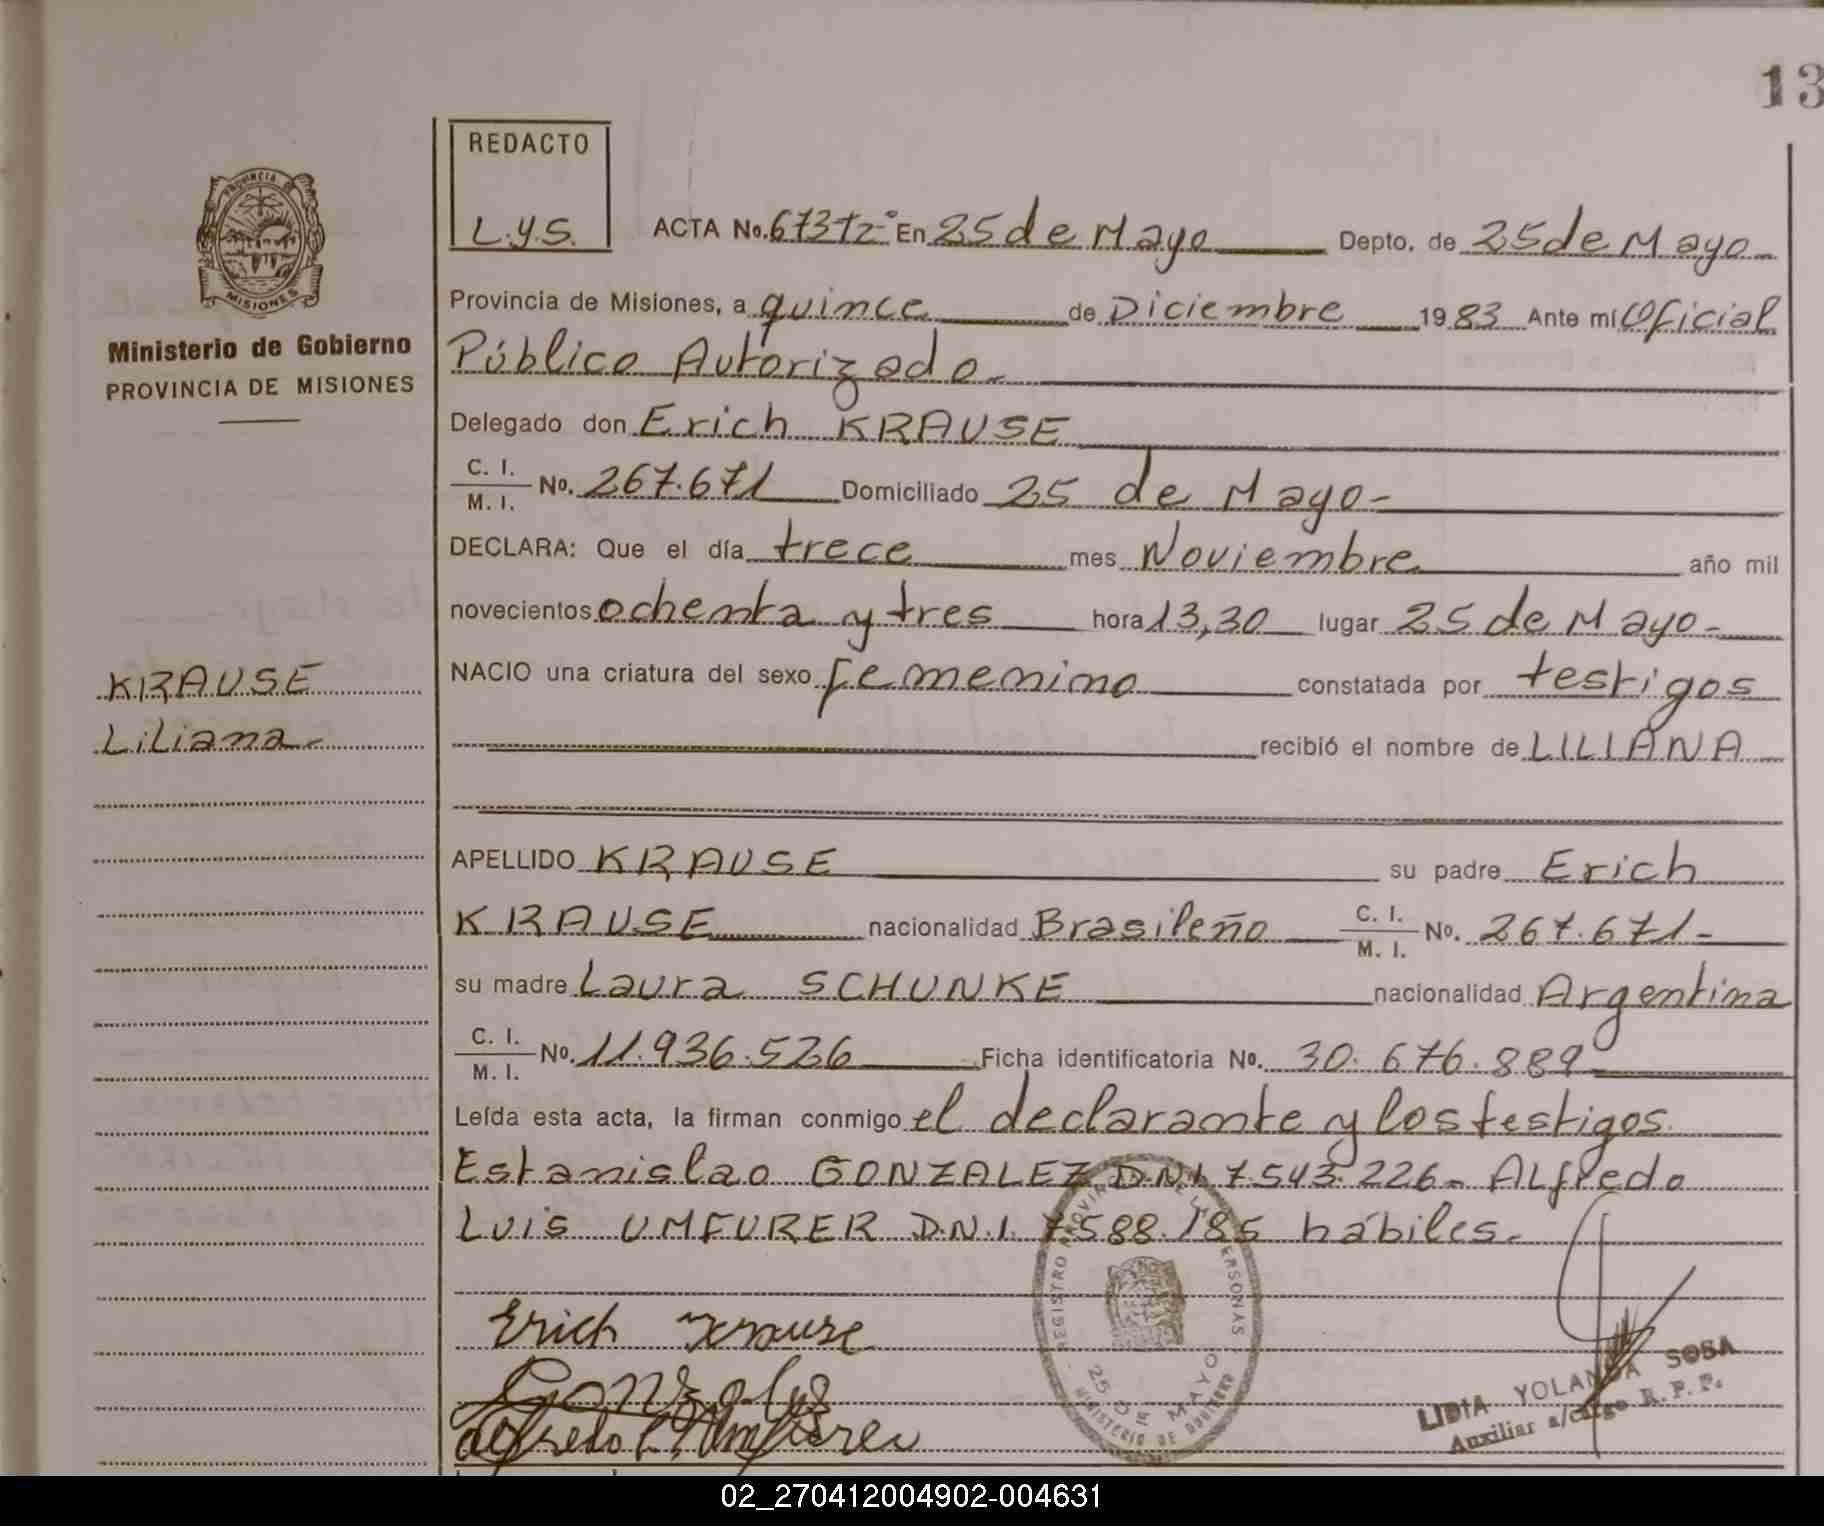 13
REDACTO
L.y.S.
ACTA No. 673 Tz° En 25 de Mayo Depto. de 25 de Mayo
PROVINCIA DE
MISIONES
Provincia de Misiones, a quince de Diciembre 1983 Ante mí Oficial
Ministerio de Gobierno
PROVINCIA DE MISIONES
Público Autorizado
Delegado don Erich KRAUSE
C. I.
M. I. No. 267.671 Domiciliado 25 de Mayo-
DECLARA: Que el día trece mes Noviembre año mil
novecientos ochenta y tres hora 13,30 lugar 25 de Mayo-
KRAUSE
Liliana-
NACIO una criatura del sexo femenino constatada por testigos
recibió el nombre de LILIANA
APELLIDO KRAUSE su padre Erich
KRAUSE nacionalidad Brasileño C. I.
M. I. No. 267.671-
su madre Laura SCHUNKE nacionalidad Argentina
C. I.
M. I. No. 11.936.526 Ficha identificatoria No. 30.676.889
Leída esta acta, la firman conmigo el declarante y los testigos
Estanislao GONZALEZ D.N.I. 7.543.226- Alfredo
Luis UMFURER D.N.I. 7.588.185 hábiles.
Erich Krause
Gonzalez
Alfredo L. Umfurer
REGISTRO PROVINCIAL DE LAS PERSONAS
25 DE MAYO
MINISTERIO DE GOBIERNO
LIDIA YOLANDA SOSA
Auxiliar a/cargo R. P. P.
02_270412004902-004631